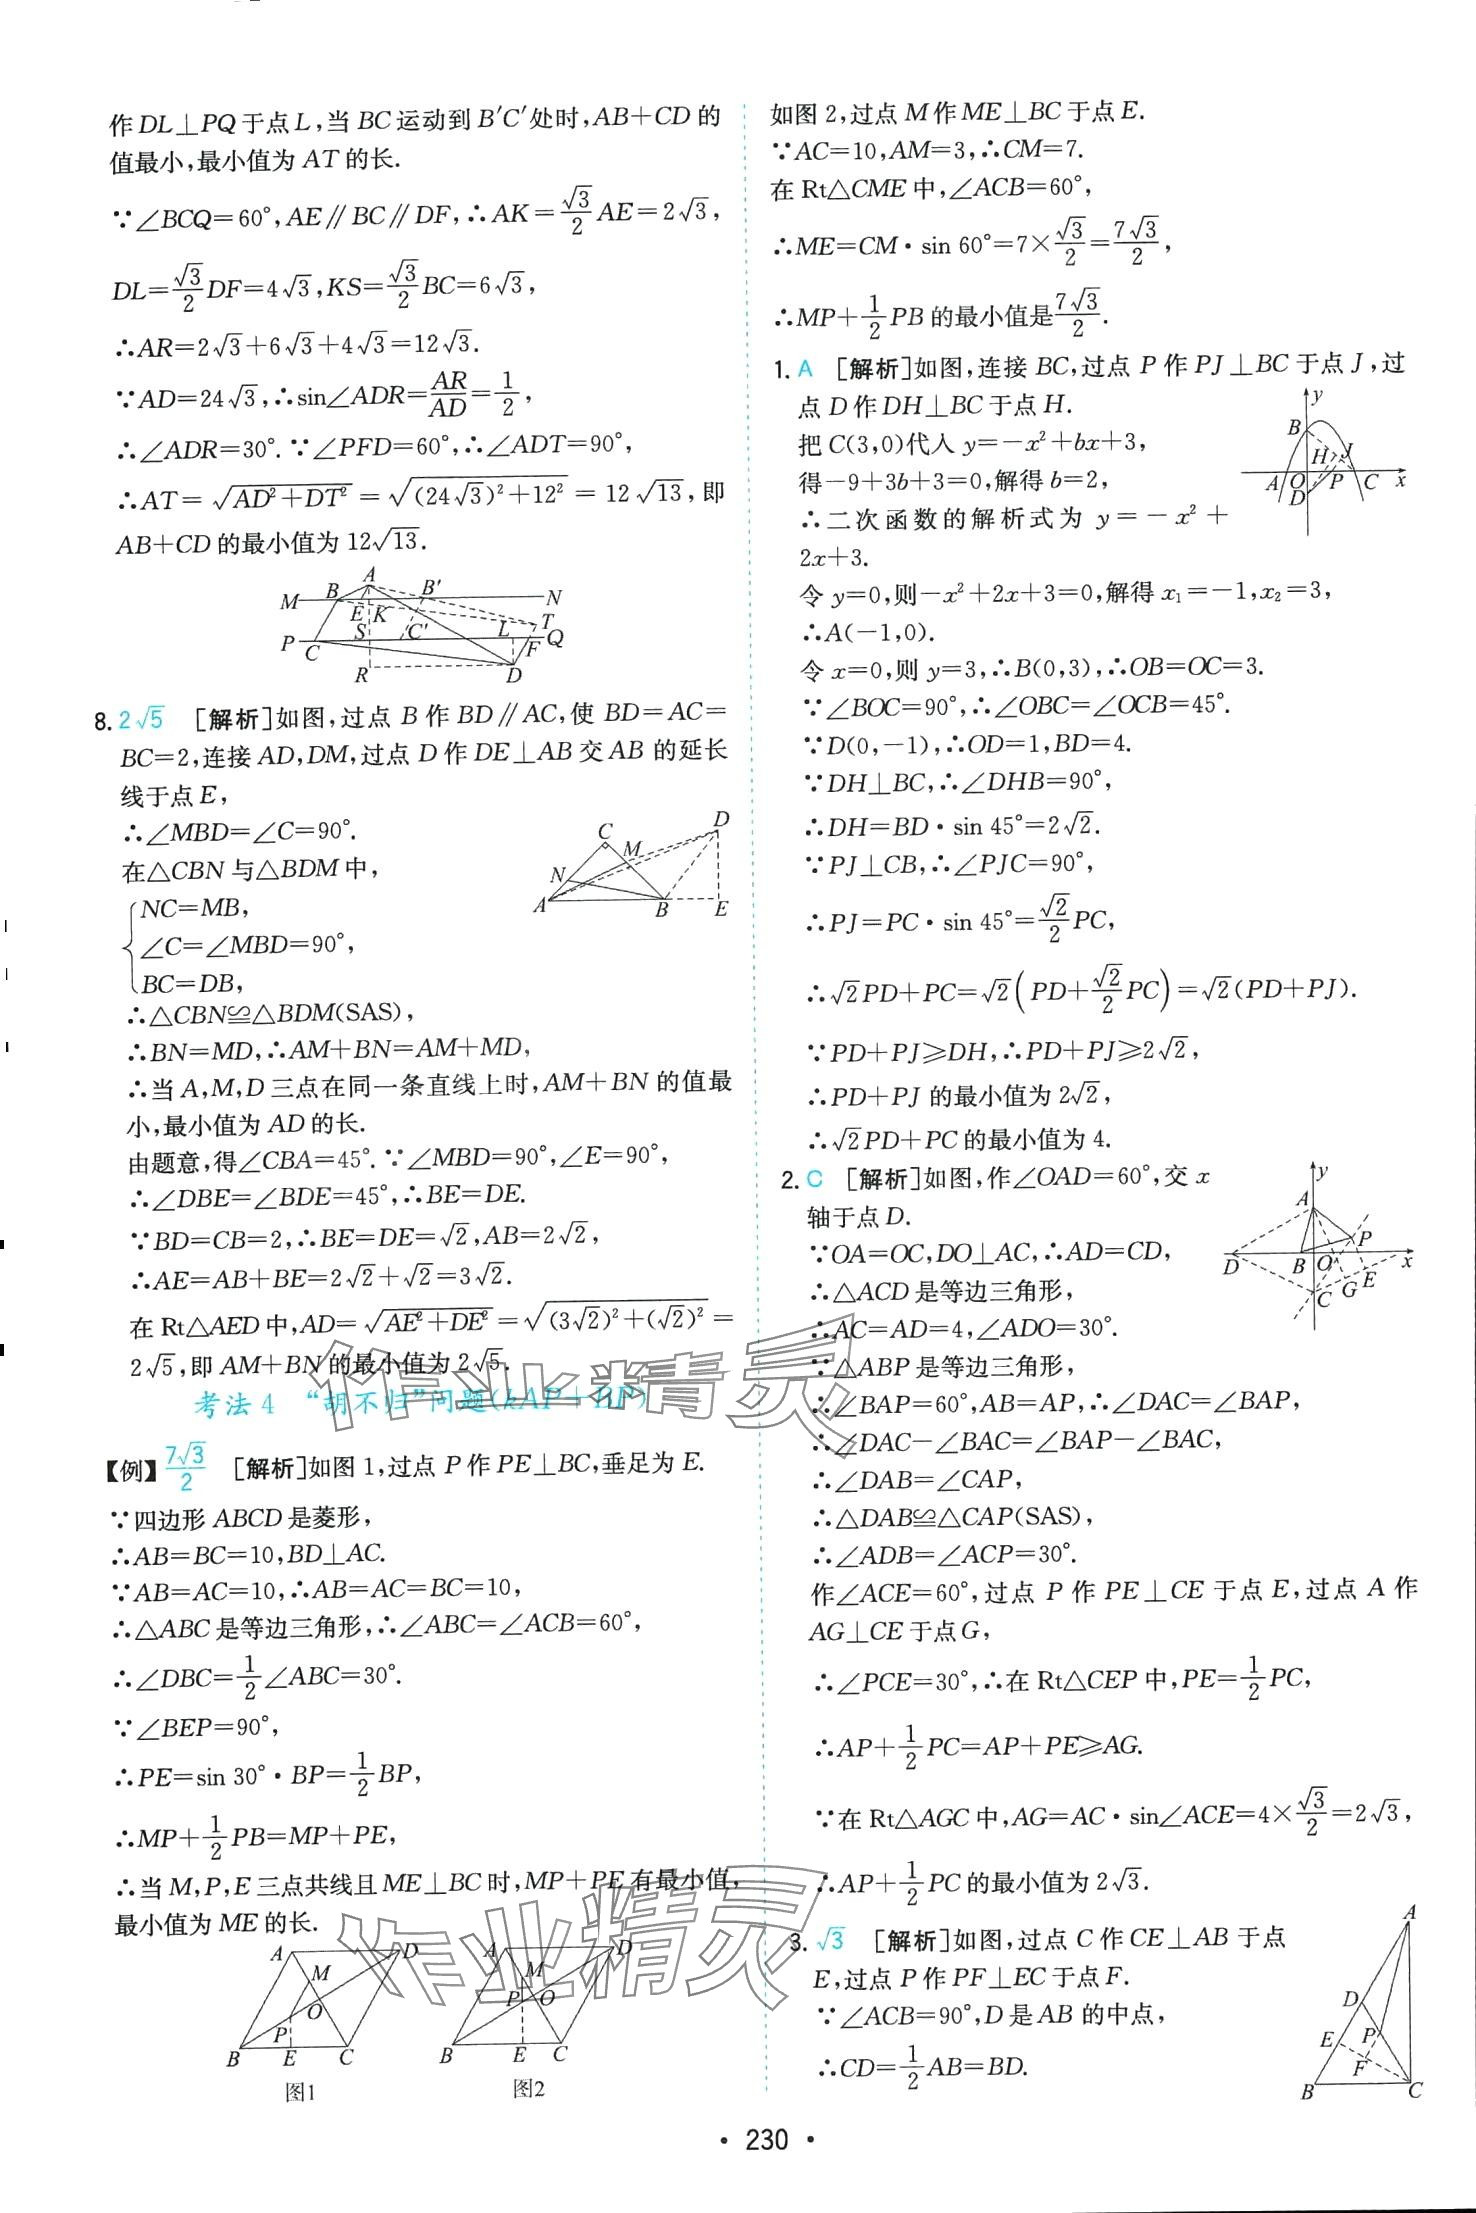 作DL⊥PQ于点L,当BC运动到B′C′处时,AB+CD的
值最小,最小值为AT的长.
∵∠BCQ=60°,AE∥BC∥DF,∴AK=√3/2 AE=2√3,
DL=√3/2 DF=4√3,KS=√3/2 BC=6√3,
∴AR=2√3+6√3+4√3=12√3.
∵AD=24√3,∴sin∠ADR=AR/AD=1/2,
∴∠ADR=30°.∵∠PFD=60°,∴∠ADT=90°,
∴AT=√(AD²+DT²)=√((24√3)²+12²)=12√13,即
AB+CD的最小值为12√13.
A
B
B′
M
N
E
K
T
S
C′
L
Q
P
C
F
R
D
8. 2√5 [解析]如图,过点B作BD∥AC,使BD=AC=
BC=2,连接AD,DM,过点D作DE⊥AB交AB的延长
线于点E,
∴∠MBD=∠C=90°.
在△CBN与△BDM中,
{NC=MB,
∠C=∠MBD=90°,
BC=DB,
C
M
D
N
A
B
E
∴△CBN≌△BDM(SAS),
∴BN=MD,∴AM+BN=AM+MD,
∴当A,M,D三点在同一条直线上时,AM+BN的值最
小,最小值为AD的长.
由题意,得∠CBA=45°.∵∠MBD=90°,∠E=90°,
∴∠DBE=∠BDE=45°,∴BE=DE.
∵BD=CB=2,∴BE=DE=√2,AB=2√2,
∴AE=AB+BE=2√2+√2=3√2.
在Rt△AED中,AD=√(AE²+DE²)=√((3√2)²+(√2)²)=
2√5,即AM+BN的最小值为2√5.
作业精灵
考法4 “胡不归”问题(kAP+BP)
【例】7√3/2 [解析]如图1,过点P作PE⊥BC,垂足为E.
∵四边形ABCD是菱形,
∴AB=BC=10,BD⊥AC.
∵AB=AC=10,∴AB=AC=BC=10,
∴△ABC是等边三角形,∴∠ABC=∠ACB=60°,
∴∠DBC=1/2∠ABC=30°.
∵∠BEP=90°,
∴PE=sin 30°·BP=1/2 BP,
∴MP+1/2 PB=MP+PE,
∴当M,P,E三点共线且ME⊥BC时,MP+PE有最小值,
最小值为ME的长.
作业精灵
A
D
M
O
P
B
E
C
图1
A
D
M
P
O
B
E
C
图2
如图2,过点M作ME⊥BC于点E.
∵AC=10,AM=3,∴CM=7.
在Rt△CME中,∠ACB=60°,
∴ME=CM·sin 60°=7×√3/2=7√3/2,
∴MP+1/2 PB的最小值是7√3/2.
1. A [解析]如图,连接BC,过点P作PJ⊥BC于点J,过
点D作DH⊥BC于点H.
把C(3,0)代入y=-x²+bx+3,
得-9+3b+3=0,解得b=2,
∴二次函数的解析式为y=-x²+
2x+3.
y
B
H
J
A
O
D
P
C
x
令y=0,则-x²+2x+3=0,解得x₁=-1,x₂=3,
∴A(-1,0).
令x=0,则y=3,∴B(0,3),∴OB=OC=3.
∵∠BOC=90°,∴∠OBC=∠OCB=45°.
∵D(0,-1),∴OD=1,BD=4.
∵DH⊥BC,∴∠DHB=90°,
∴DH=BD·sin 45°=2√2.
∵PJ⊥CB,∴∠PJC=90°,
∴PJ=PC·sin 45°=√2/2 PC,
∴√2PD+PC=√2(PD+√2/2 PC)=√2(PD+PJ).
∵PD+PJ⩾DH,∴PD+PJ⩾2√2,
∴PD+PJ的最小值为2√2,
∴√2PD+PC的最小值为4.
2. C [解析]如图,作∠OAD=60°,交x
轴于点D.
∵OA=OC,DO⊥AC,∴AD=CD,
∴△ACD是等边三角形,
∴AC=AD=4,∠ADO=30°.
∵△ABP是等边三角形,
∴∠BAP=60°,AB=AP,∴∠DAC=∠BAP,
∴∠DAC-∠BAC=∠BAP-∠BAC,
∴∠DAB=∠CAP,
∴△DAB≌△CAP(SAS),
∴∠ADB=∠ACP=30°.
y
A
P
D
B
O
x
C
G
E
作∠ACE=60°,过点P作PE⊥CE于点E,过点A作
AG⊥CE于点G,
∴∠PCE=30°,∴在Rt△CEP中,PE=1/2 PC,
∴AP+1/2 PC=AP+PE⩾AG.
∵在Rt△AGC中,AG=AC·sin∠ACE=4×√3/2=2√3,
∴AP+1/2 PC的最小值为2√3.
3. √3 [解析]如图,过点C作CE⊥AB于点
E,过点P作PF⊥EC于点F.
∵∠ACB=90°,D是AB的中点,
∴CD=1/2 AB=BD.
A
D
E
P
F
B
C
· 230 ·